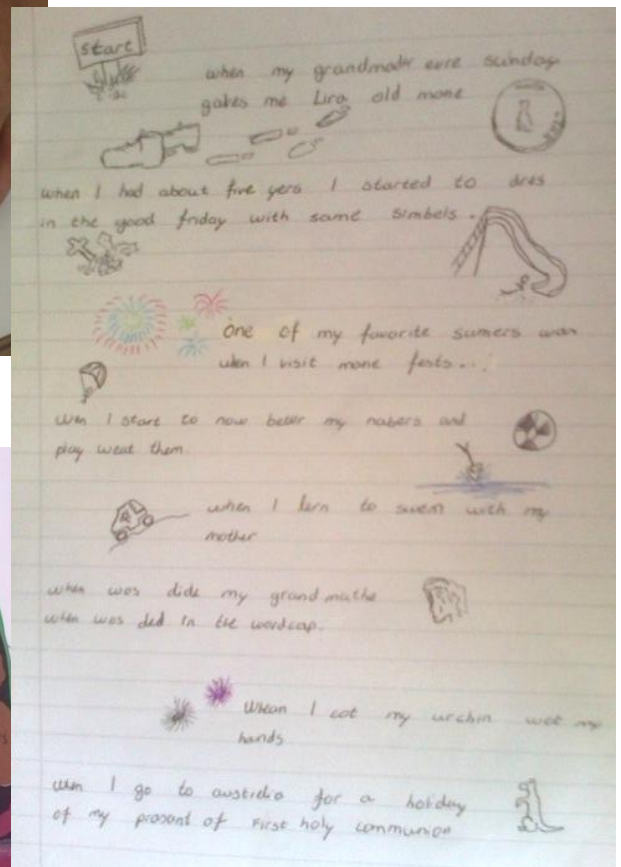 start
when my grandmathr evre sunday
gakes me Lira old mone
when I had about five yers I started to dres
in the good friday with same simbels.
one of my favorite sumers was
when I visit mone fests...
wen I start to now beter my nabers and
play weat them.
when I lern to swem with my
mother
when was dide my grandmathe
when was ded in the wordcap.
Whean I cot my urchin wet my
hands
wen I go to austrelia for a holiday
of my prasant of First holy communion